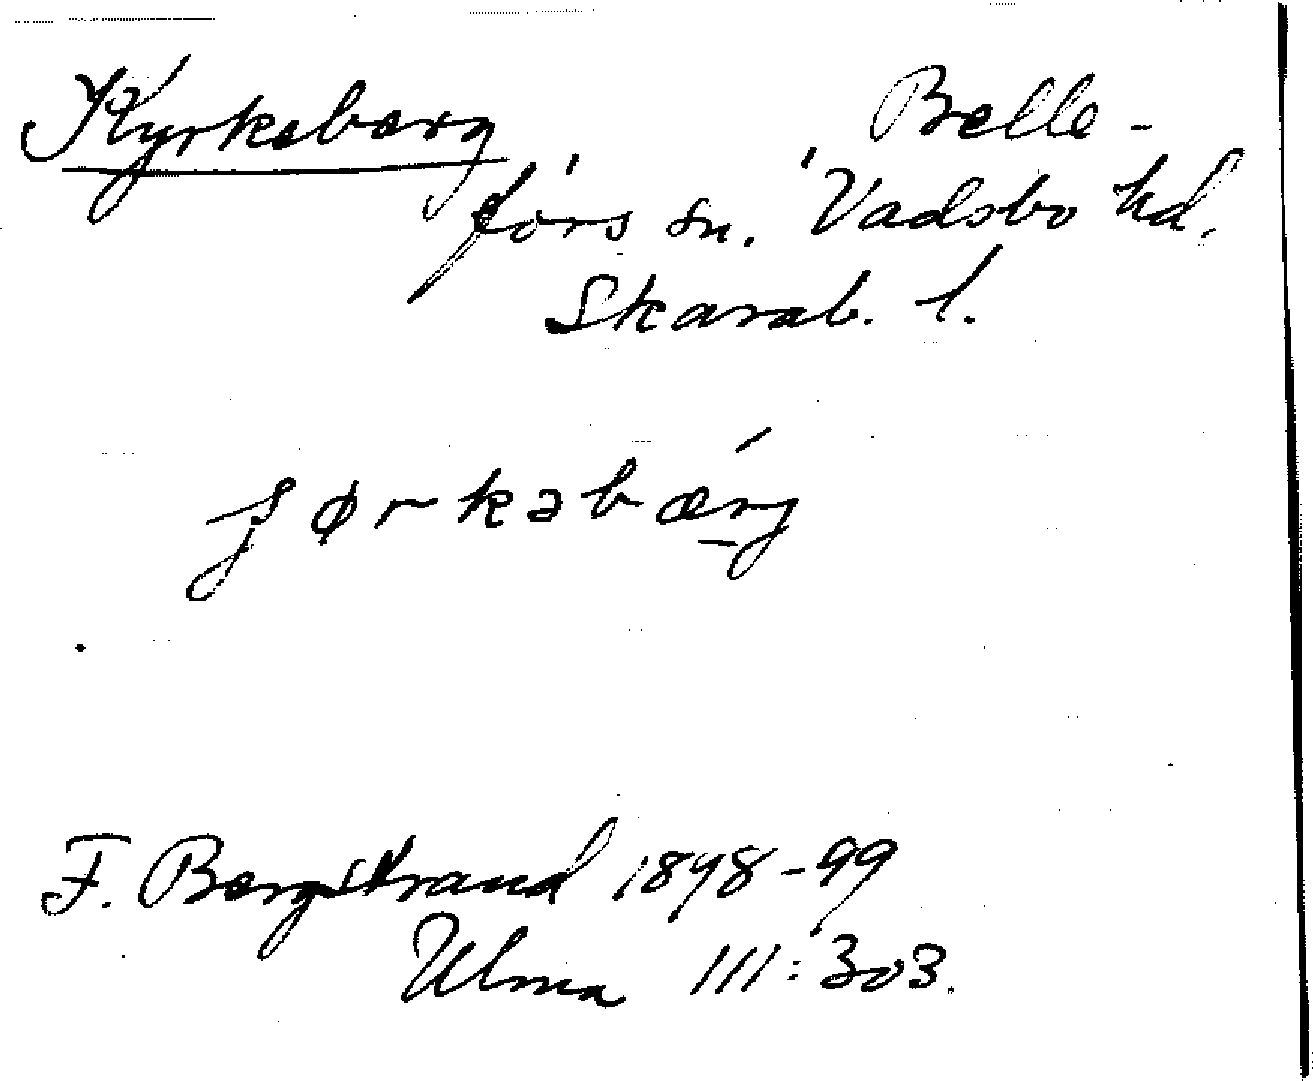 Kyrkeberg Belle-
fors sn. Vadsbo hd.
Skarab. l.
ʂørkəbærg
F. Bergstrand 1898-99
Ulma 111:303.